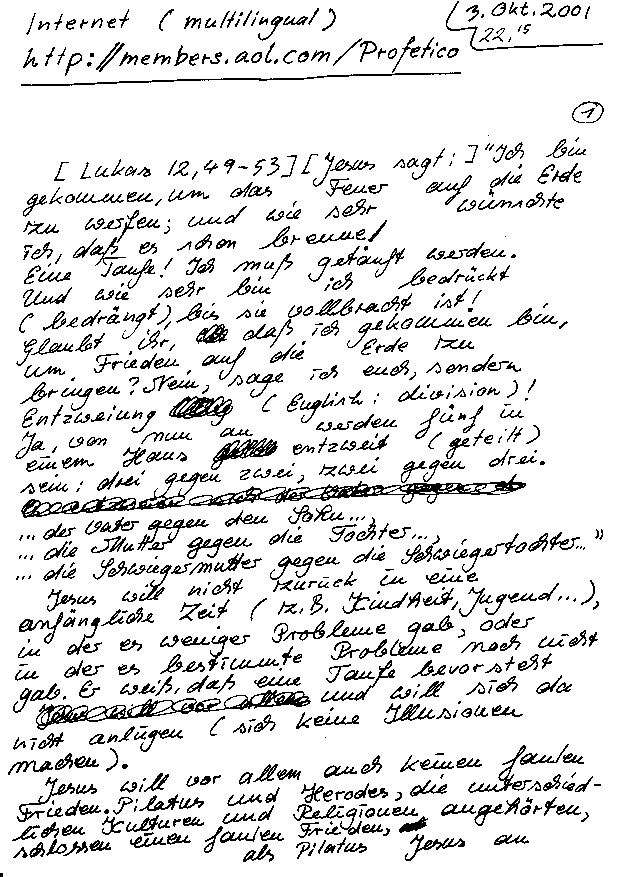 Internet (multilingual)
3. Okt. 2001
22,15
http://members.aol.com/Profetico
1
[Lukas 12,49-53] [Jesus sagt:] "Ich bin
gekommen, um das Feuer auf die Erde
zu werfen; und wie sehr wünschte
ich, daß es schon brenne!
Eine Taufe! Ich muß getauft werden.
Und wie sehr bin ich bedrückt
(bedrängt), bis sie vollbracht ist!
Glaubt ihr, daß ich gekommen bin,
um Frieden auf die Erde zu
bringen? Nein, sage ich euch, sondern
Entzweiung (English: division)!
Ja, von nun an werden fünf in
einem Haus entzweit (geteilt)
sein: drei gegen zwei, zwei gegen drei.
... der Vater gegen den Sohn...,
... die Mutter gegen die Tochter...,
... die Schwiegermutter gegen die Schwiegertochter..."
Jesus will nicht zurück in eine
anfängliche Zeit (z.B. Kindheit, Jugend...),
in der es weniger Probleme gab, oder
in der es bestimmte Probleme noch nicht
gab. Er weiß, daß eine Taufe bevorsteht
und will sich da
nicht anlügen (sich keine Illusionen
machen).
Jesus will vor allem auch keinen faulen
Frieden. Pilatus und Herodes, die unterschied-
lichen Kulturen und Religionen angehörten,
schlossen einen faulen Frieden,
als Pilatus Jesus an